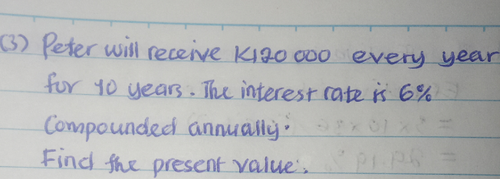 (3) Peter will receive K120 000 every year
for 10 years. The interest rate is 6%
Compounded annually.
Find the present value.